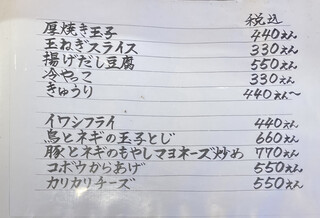 税込
厚焼き玉子 440えん
玉ねぎスライス 330えん
揚げだし豆腐 550えん
冷やっこ 330えん
きゅうり 440えん〜
イワシフライ 440えん
鳥とネギの玉子とじ 660えん
豚とネギのもやしマヨネーズ炒め 770えん
コボウからあげ 550えん
カリカリチーズ 550えん